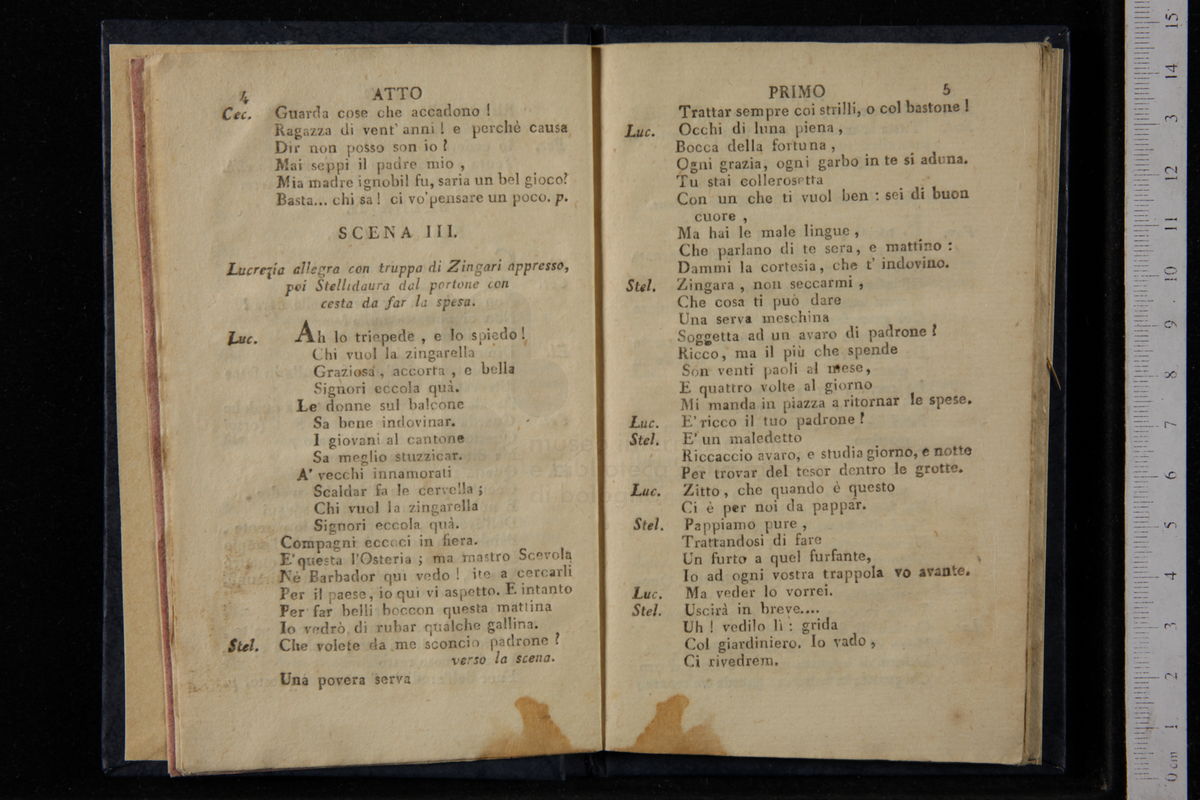 4 ATTO
Cec. Guarda cose che accadono !
Ragazza di vent' anni ! e perchè causa
Dir non posso son io ?
Mai seppi il padre mio ,
Mia madre ignobil fu, saria un bel gioco!
Basta... chi sa ! ci vo'pensare un poco. p.
SCENA III.
Lucrezia allegra con truppa di Zingari appresso,
poi Stellidaura dal portone con
cesta da far la spesa.
Luc. Ah lo triepede , e lo spiedo !
Chi vuol la zingarella
Graziosa , accorta , e bella
Signori eccola quà.
Le donne sul balcone
Sa bene indovinar.
I giovani al cantone
Sa meglio stuzzicar.
A' vecchi innamorati
Scaldar fa le cervella ;
Chi vuol la zingarella
Signori eccola quà.
Compagni eccoci in fiera.
E' questa l'Osteria ; ma mastro Scevola
Nè Barbador qui vedo ! ite a cercarli
Per il paese, io qui vi aspetto. E intanto
Per far belli boccon questa mattina
Io vedrò di rubar qualche gallina.
Stel. Che volete da me sconcio padrone ?
verso la scena.
Una povera serva
PRIMO 5
Trattar sempre coi strilli, o col bastone !
Luc. Occhi di luna piena ,
Bocca della fortuna ,
Ogni grazia, ogni garbo in te si aduna.
Tu stai collerosetta
Con un che ti vuol ben : sei di buon
cuore ,
Ma hai le male lingue ,
Che parlano di te sera, e mattino :
Dammi la cortesia, che t' indovino.
Stel. Zingara , non seccarmi ,
Che cosa ti può dare
Una serva meschina
Soggetta ad un avaro di padrone !
Ricco, ma il più che spende
Son venti paoli al mese,
E quattro volte al giorno
Mi manda in piazza a ritornar le spese.
Luc. E' ricco il tuo padrone ?
Stel. E' un maledetto
Riccaccio avaro, e studia giorno, e notte
Per trovar del tesor dentro le grotte.
Luc. Zitto , che quando è questo
Ci è per noi da pappar.
Stel. Pappiamo pure ,
Trattandosi di fare
Un furto a quel furfante,
Io ad ogni vostra trappola vo avante.
Luc. Ma veder lo vorrei.
Stel. Uscirà in breve....
Uh ! vedilo lì : grida
Col giardiniero. Io vado ,
Ci rivedrem.
0 cm 1 2 3 4 5 6 7 8 9 10 11 12 13 14 15